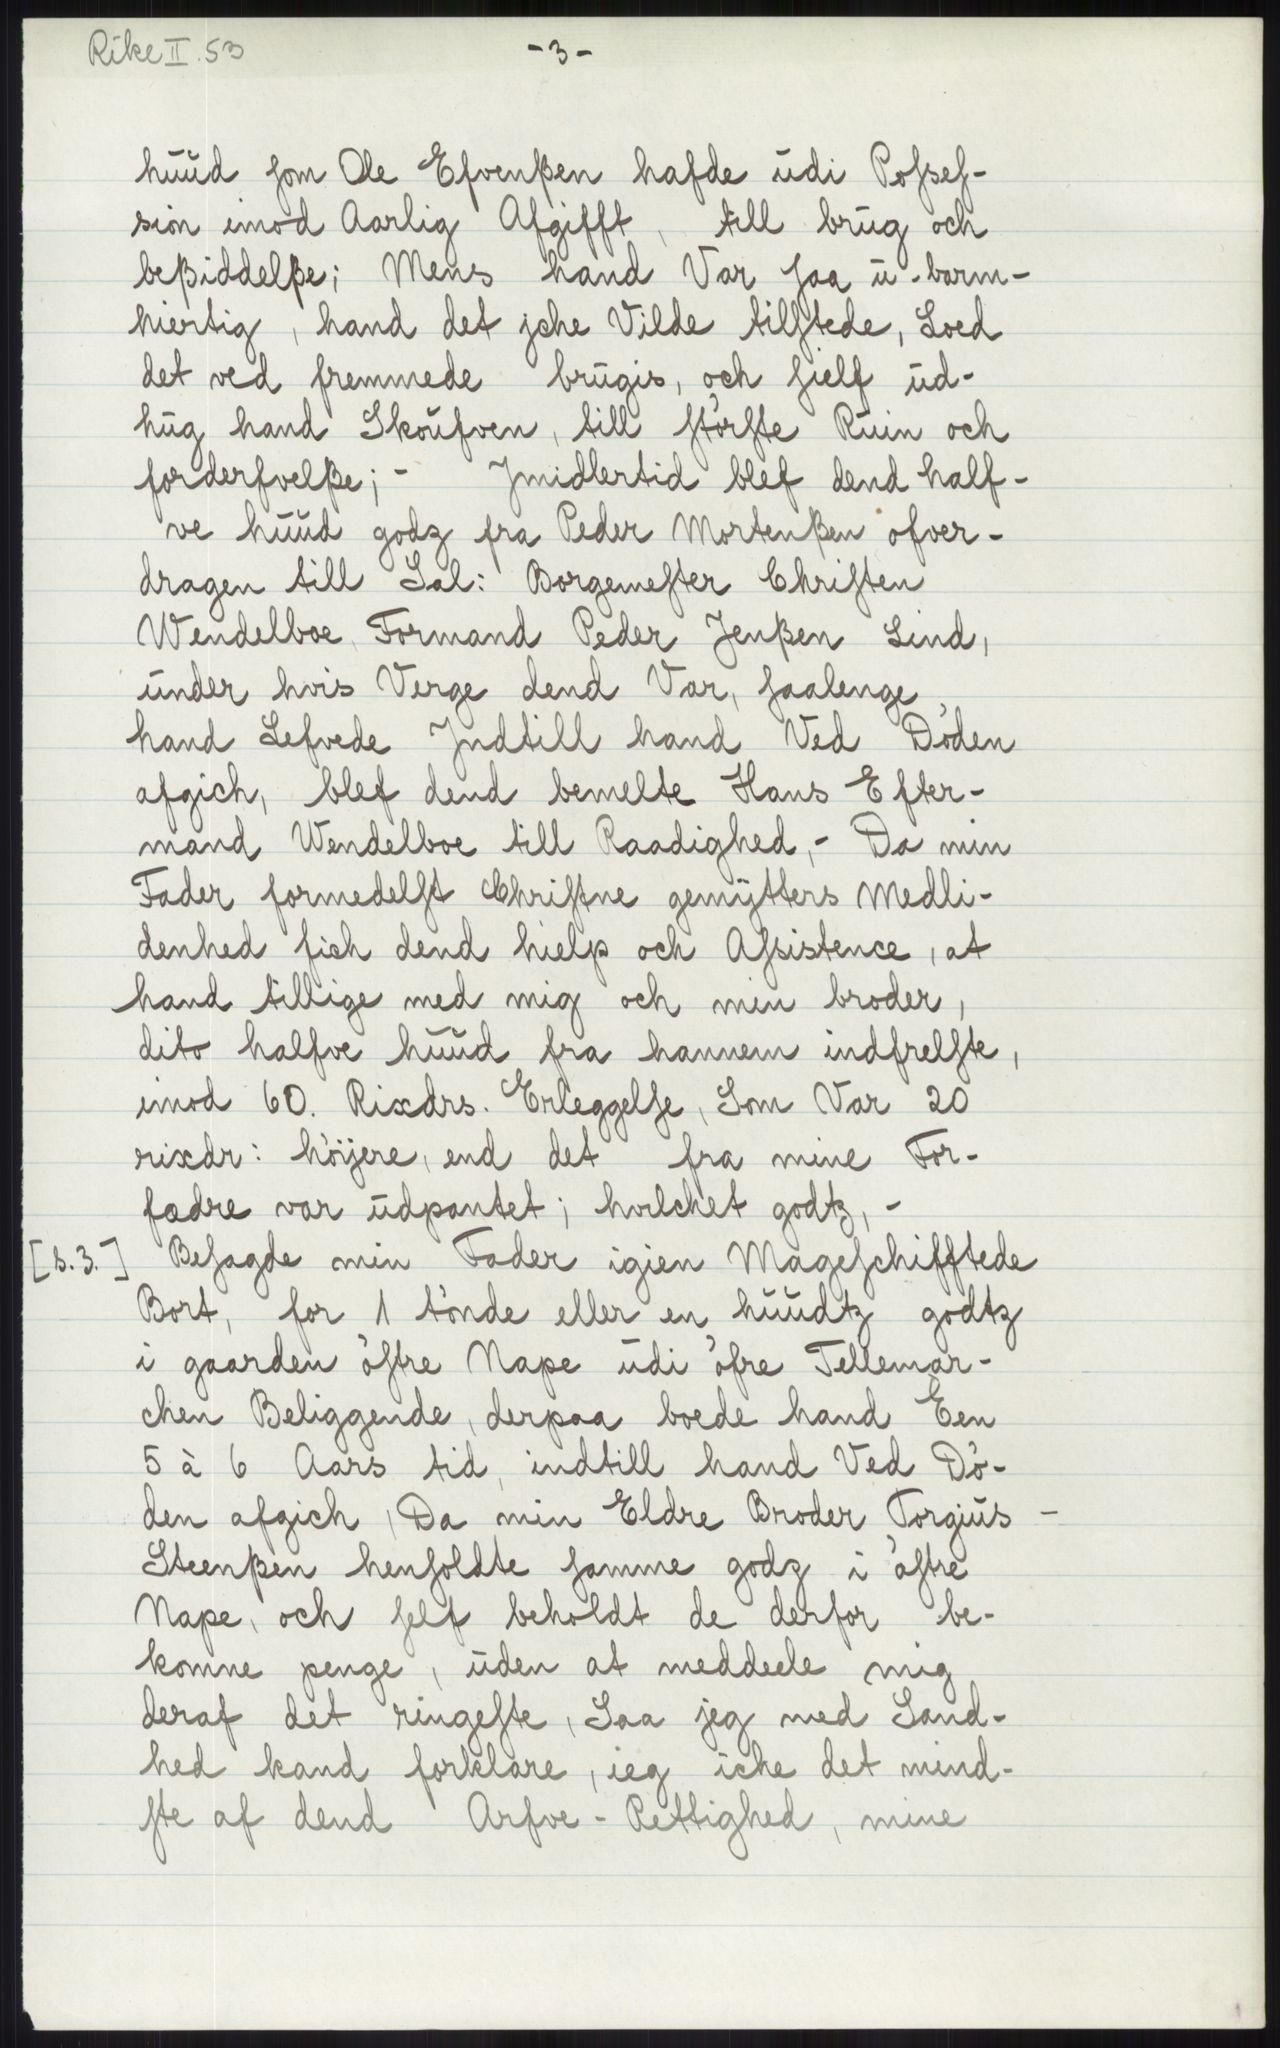 Rike II. 53
-3-
huud ſom Ole Efvenßen hafde udi Poſseſ-
sion imod Aarlig Afgifft, till brug och
beßiddelße; Mens hand Var ſaa u-barm-
hiertig, hand det jche Vilde tilſtede, Loed
det ved fremmede brugis, och ſielf ud-
hug hand Skoufven, till ſtörſte Ruin och
forderfvelße; - Jmidlertid blef dend half-
ve huud godz fra Peder Mortenßen ofver-
dragen till Sal: Borgemeſter Chriſten
Wendelboe, Formand Peder Jenßen Lind,
under hvis Verge dend Var, ſaalenge
hand Lefvede Jndtill hand Ved Döden
afgich, blef dend bemelte Hans Efter-
mand Wendelboe till Raadighed, - Da min
Fader formedelſt Chriſtne gemytters Medli-
denhed fich dend hielp och Aſsistence, at
hand tillige med mig och min broder,
dito halfve huud fra hannem indfrelſte,
imod 60. Rixdrs. Erleggelſe, Som Var 20
rixdr: höijere, end det fra mine For-
fædre var udpantet; hvilchet godtz, -
[s. 3.] Beſagde min Fader igien Mageſchifftede
Bort, for 1 tönde eller en huudtz godtz
i gaarden öſtre Nape udi öfre Tellemar-
chen Beliggende, derpaa boede hand Een
5 à 6 Aars tid, indtill hand Ved Dö-
den afgich, Da min Eldre Broder Torgius -
Steenßen henſoldte ſamme godz i öſtre
Nape, och ſelf beholdt de derfor be-
komne penge, uden at meddeele mig
deraf det ringeſte, Saa jeg med Sand-
hed kand forklare, ieg iche det mind-
ſte af dend Arfve-Rettighed, mine